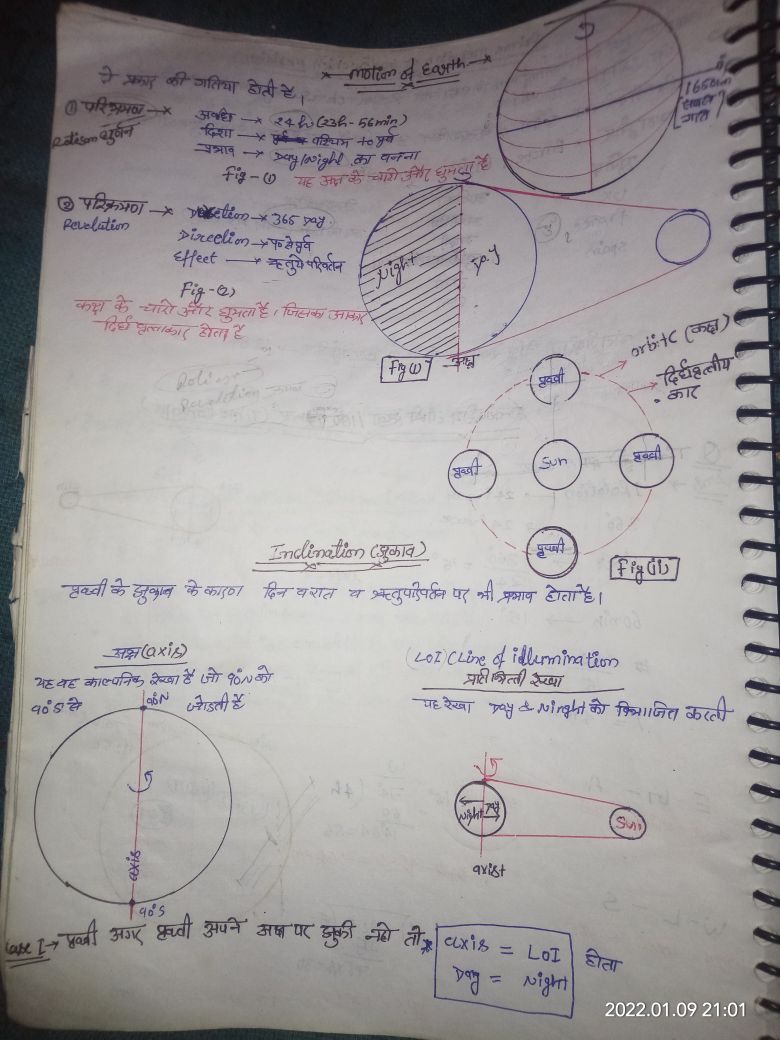 * Motion of Earth *
ये प्रकार की गतिया होती है।
① परिभ्रमण → अवधि → 24h (23h-56min)
दिशा → पश्चिम to पूर्व
प्रभाव → Day/Night का बनना
Fig-(1) यह अक्ष के चारो और घुमता है
1650km
② परिक्रमण → → 365 Day
Revolution Direction → प० से पूर्व
Effect → ऋतुये परिवर्तन
Fig-(2)
कक्ष के चारो और घुमता है, जिसका आकार
दिर्घ वृत्ताकार होता है
Night Day
Fig(i) अक्ष
orbit (कक्ष)
दिर्घवृत्तीय
कार
पृथ्वी
पृथ्वी Sun पृथ्वी
पृथ्वी
Fig(ii)
Inclination (झुकाव)
पृथ्वी के झुकाव के कारण दिन व रात व ऋतुपरिवर्तन पर भी प्रभाव होता है।
अक्ष (axis)
यह वह काल्पनिक रेखा है जो 90°N को
90°S से जोडती है
90°N
axis
90°S
(LOI) (Line of illumination
रेखा
यह रेखा Day & Night को विभाजित करती
Night Day Sun
axis
Case I → पृथ्वी अगर पृथ्वी अपने अक्ष पर झुकी नही तो,
axis = LOI होता
Day = Night
2022.01.09 21:01